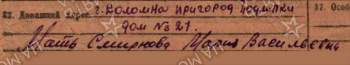 22. Домашний адрес г. Коломна пригород Подлипки 37. Особ
дом № 21.
Мать Смирнова Мария Васильевна